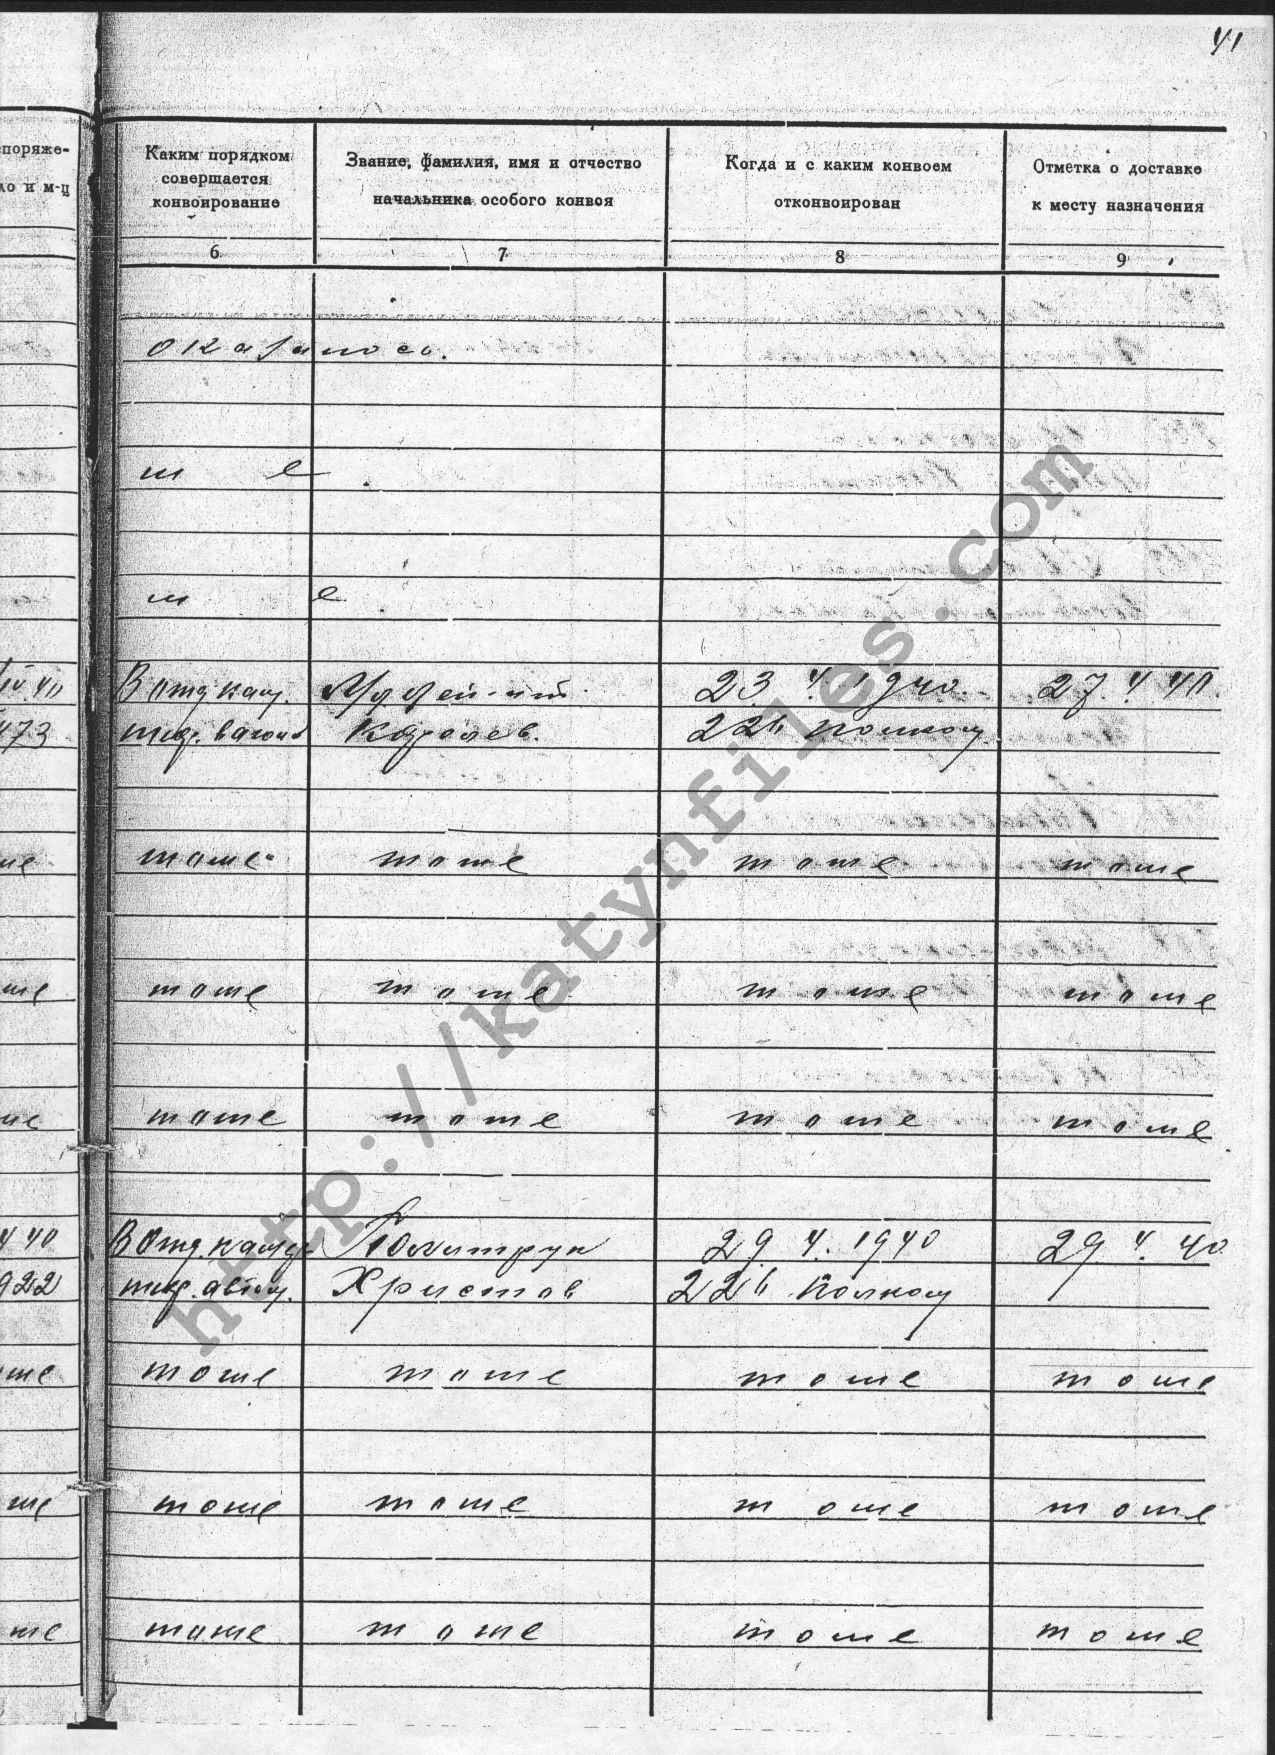 41
споряже-
ло и м-ц
Каким порядком
совершается
конвоирование
Звание, фамилия, имя и отчество
начальника особого конвоя
Когда и с каким конвоем
отконвоирован
Отметка о доставке
к месту назначения
6 7 8 9
оказалось.
ж е
ж е
IV.40 В отд. кам. 23. 4. 1940. 27. 4. 40.
473 тюр. вагона Королев. 226 полком
же тоже тоже тоже тоже
же тоже тоже тоже тоже
же тоже тоже тоже тоже
4 40 В отд. камере Политрук 29. 4. 1940 29. 4. 40
922 тюр. автом. Христов 226 полком
же тоже тоже тоже тоже
же тоже тоже тоже тоже
же тоже тоже тоже тоже
http://katynfiles.com